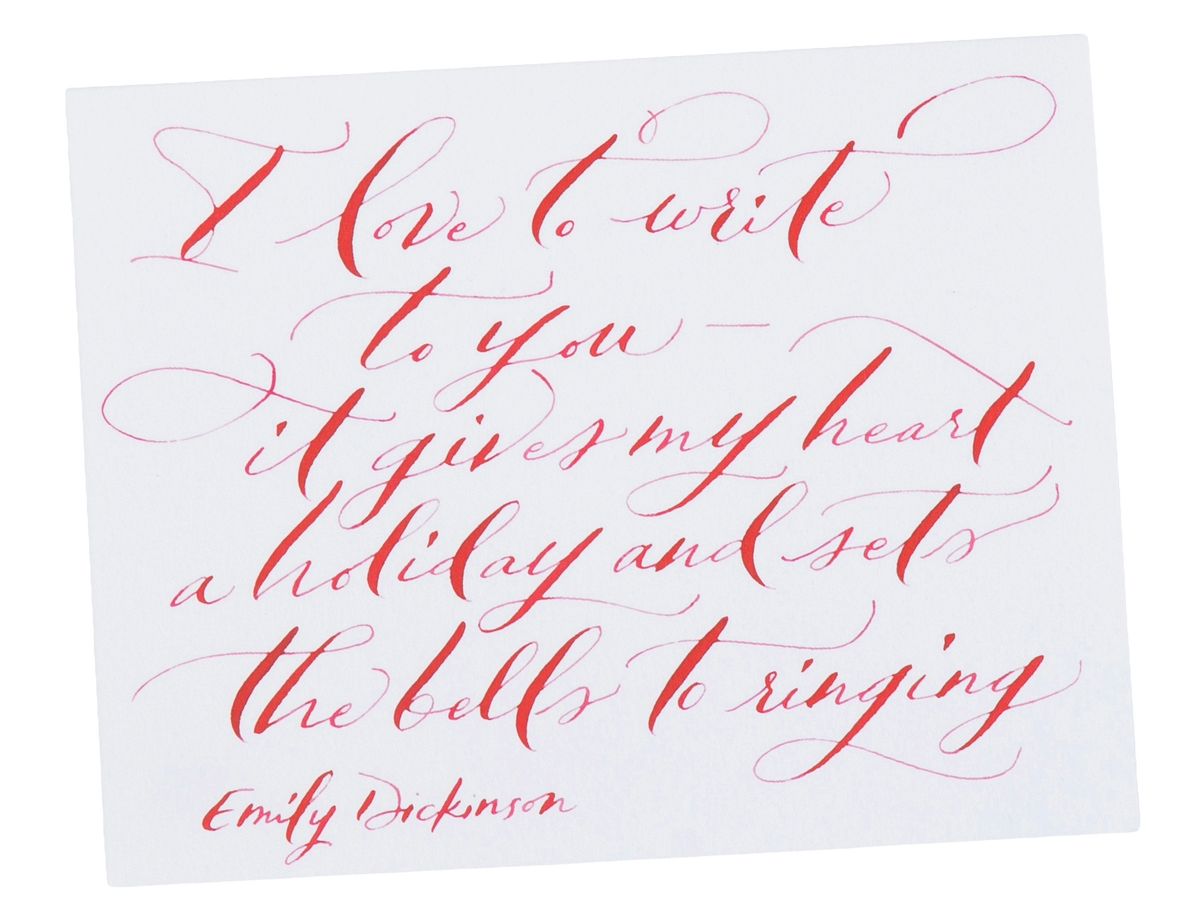 I love to write
to you —
it gives my heart
a holiday and sets
the bells to ringing
Emily Dickinson